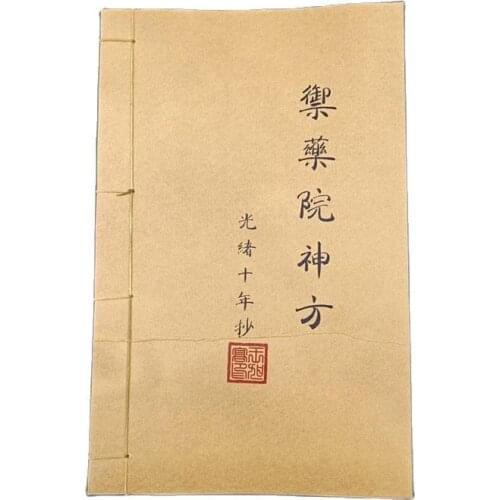 禦藥院神方
光緒十年抄